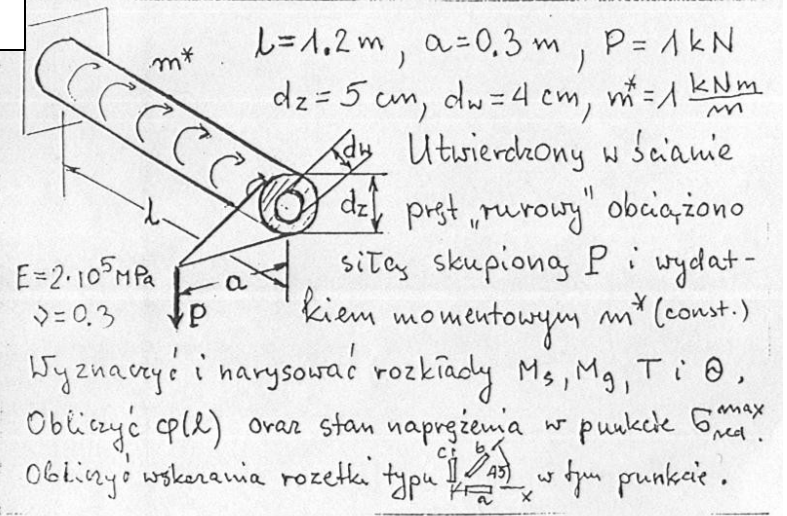 l=1.2 m, a=0.3 m, P=1 kN
m*
dz=5 cm, dw=4 cm, m*=1 kNm/m
dw
Utwierdzony w ścianie
dz
pręt „rurowy" obciążono
l
siłą skupioną P i wydat-
E=2·10⁵MPa
a
ν=0.3
P
kiem momentowym m* (const.)
Wyznaczyć i narysować rozkłady Ms, Mg, T i Θ.
Obliczyć φ(l) oraz stan naprężenia w punkcie σ_red^max.
Obliczyć wskazania rozetki typu c b 45 a x w tym punkcie.